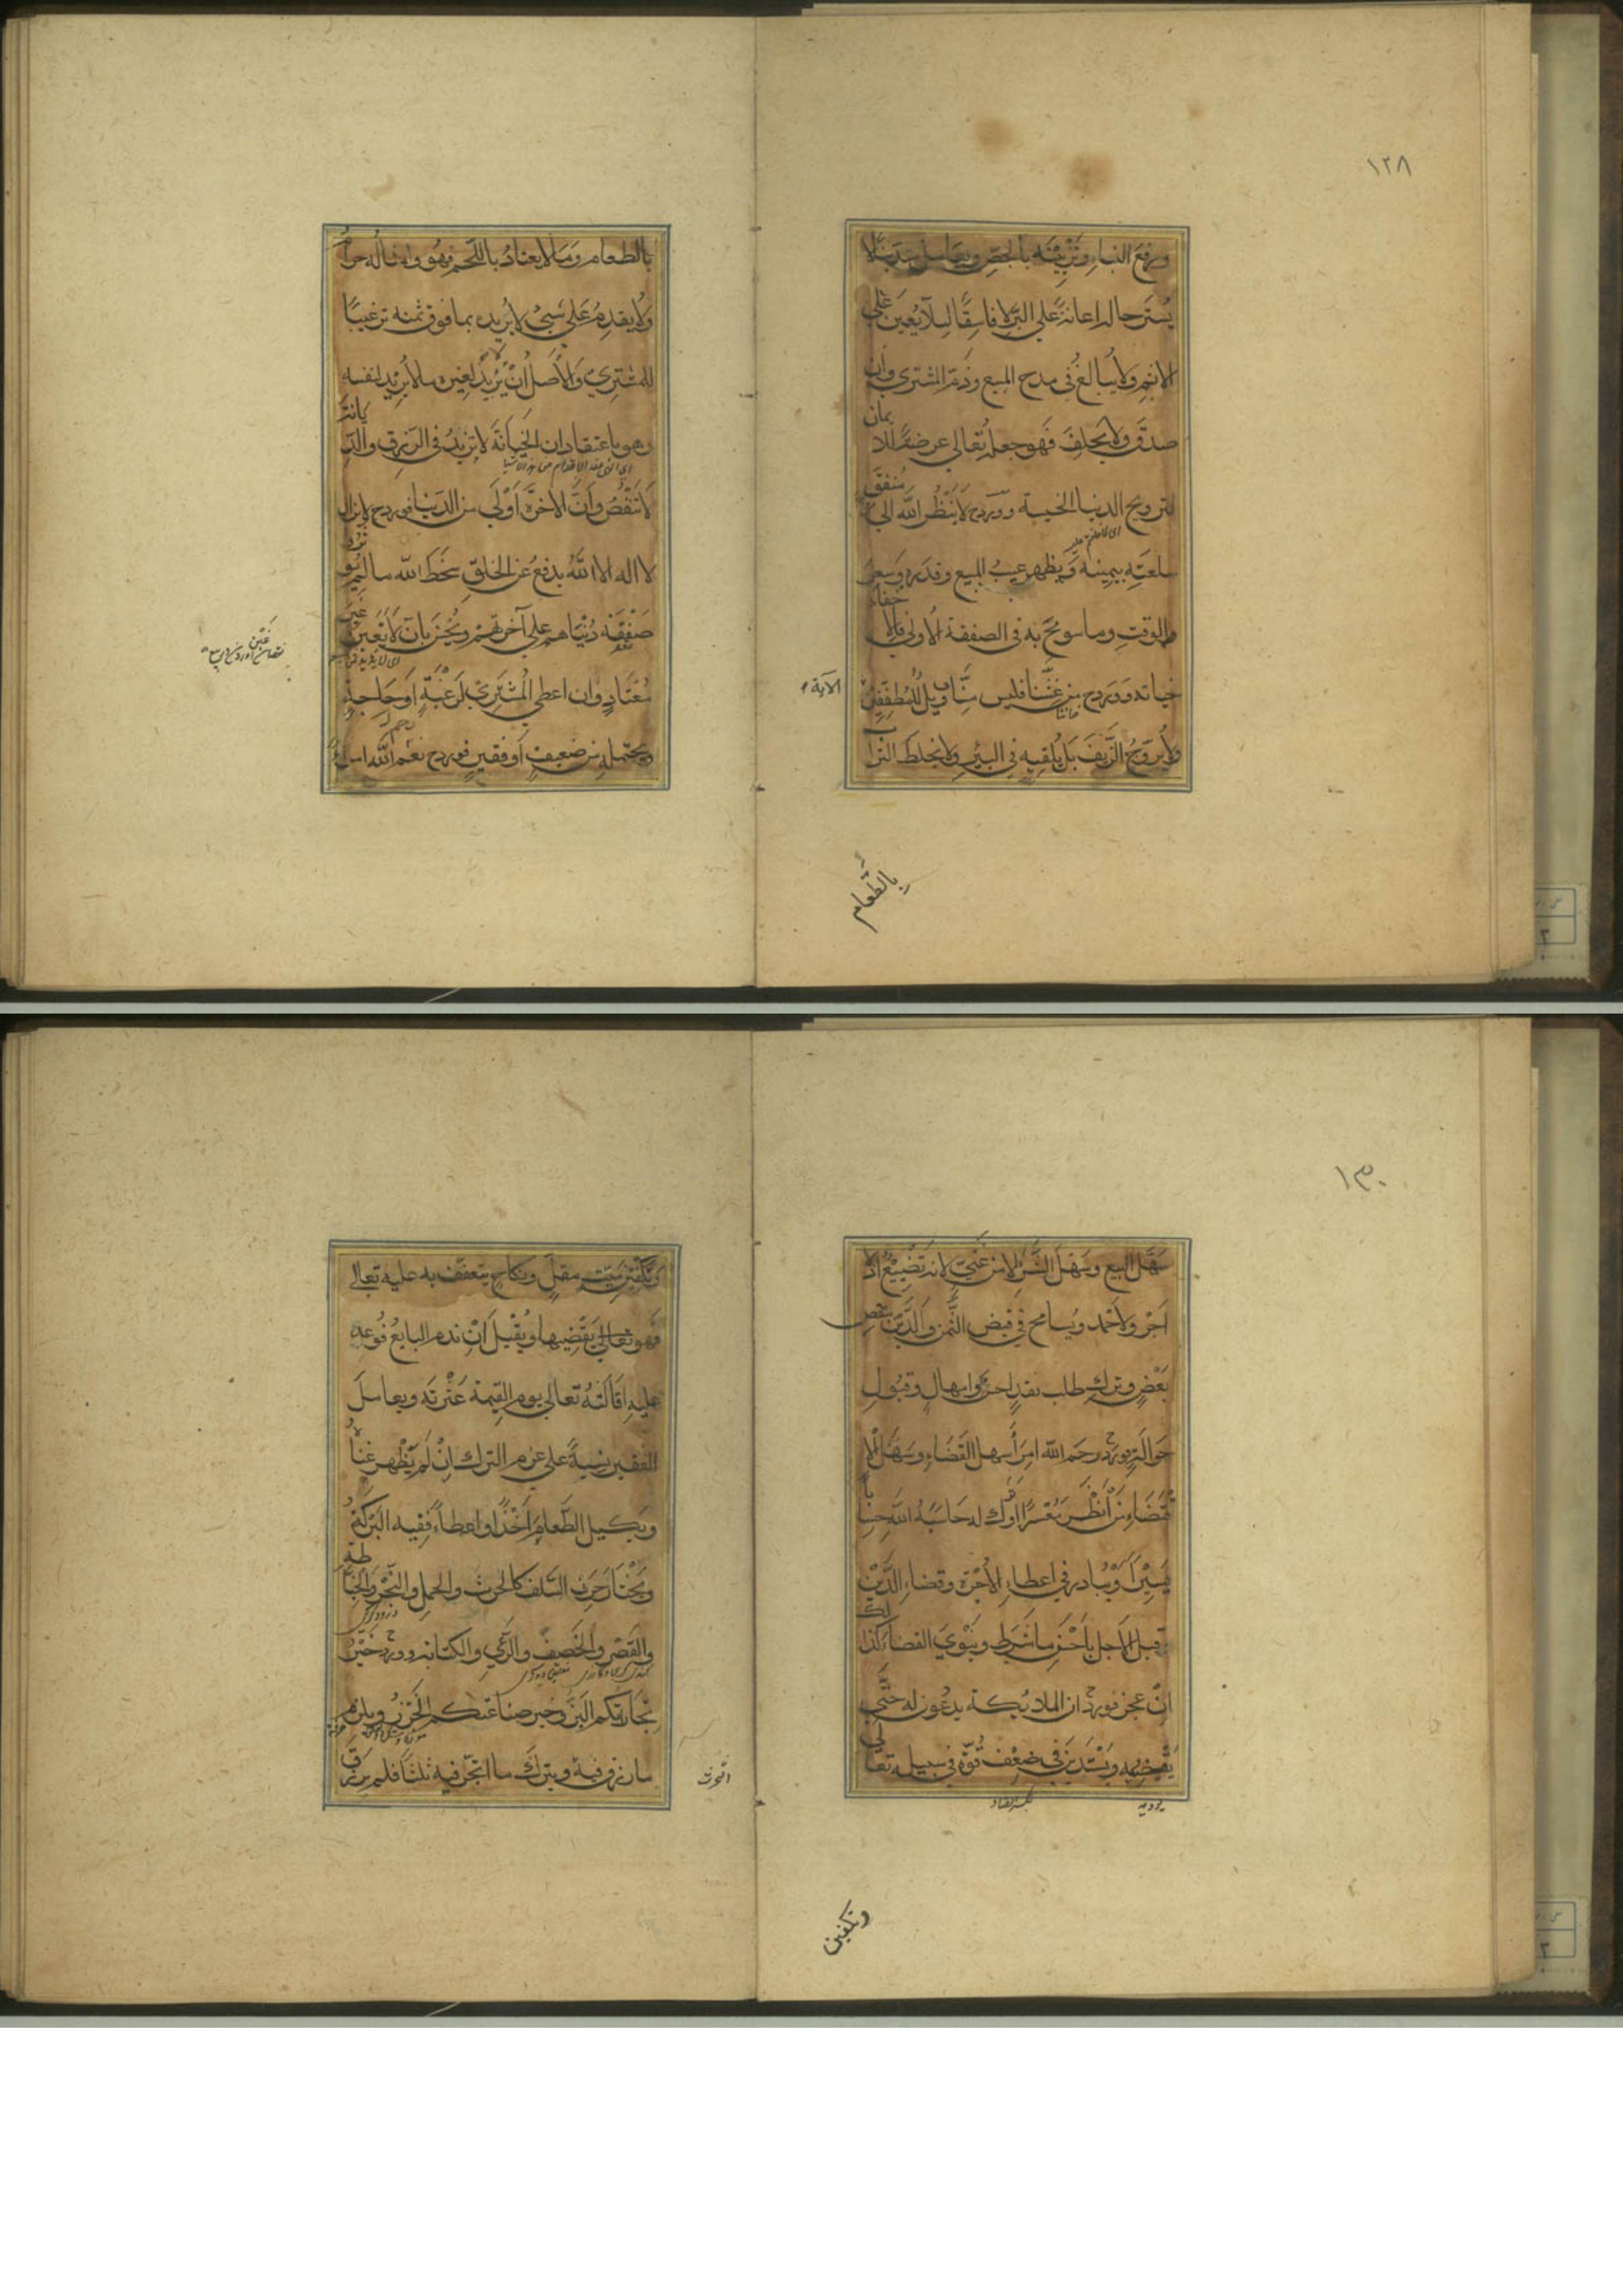 ١٢٨
ورفع البناء وتزيينه بالجص ويعامل متدينا لا
يستر حاله اعانة على البر لا فاسقا ليلا يعين على
الاثم ولا يبالغ فى مدح المبيع وذم المشترى وان
صدق ولا يحلف فهو جعله تعالى عرضة للا يمان
لترويج الدنيا الخسيسة وورد ح لا ينظر الله الى منفق
سلعته بيمينه ويظهر عيب المبيع وقدره وسعر
الوقت وما سومح به فى الصفقة الاولى فالا خفاء
خيانة وورد ح من غشنا فليس منا ويل للمطففين
الآية
ولا يروج الزيف بل يلقيه فى البئر ولا يخلط الترا ب
بالطعام
بالطعام وما لا يعتاد باللحم فهو وامثاله حرام
ولا يقدم على شئ لا يريده بما فوق ثمنه ترغيبا
للمشترى والاصل ان لا يريد لغيره ما لا يريد لنفسه
وهو باعتقاد ان الخيانة لا تزيد فى الرزق والديانة
لا تنقص وان الاخرة اولى من الدنيا فورد ح لا يزال
لا اله الا الله يدفع عن الخلق سخط الله ما لم يؤثروا
صفقة دنياهم على آخرتهم ويحترز بان لا يغبن غبن
معتاد وان اعطى المشترى لرغبة او حاجة
ويحتمله من ضعيف او فقير فورد ح رحم الله امرأ
١٣٠
سهل البيع وسهل الشرى لا من غنى لانه تضييع اذ لا
اجر ولا حمد ويسامح فى قبض الثمن والدين بنقص
بعض وترك طلب نقد احرى وامهال وقبول
حوالة فورد ح رحم الله امرأ سهل القضاء وسهل الا
قتضاء من انظر معسرا او ترك له حاسبه الله حسابا
يسيرا ويبادر فى اعطاء الاجرة وقضاء الدين
قبل الاجل باحسن ما شرط وينوى القضاء كذلك
ان عجز فورد ح ان الملائكة يدعون له حتى
يقضيه ويستدين فى ضعف قوة فى سبيله تعالى
وتكفين
وتكفين ميت مقل ونكاح يتعفف به عليه تعالى
فهو تعالى يقضيها ويقيل ان ندم البايع فوعد
عليه اقالته تعالى يوم القيمة عثرته ويعامل
الفقير نسية على عزم الترك ان لم يظهر غناه
ويكيل الطعام اخذا واعطاء ففيه البركة
ويختار حرف السلف كالحرث والحمل والنجر والخياطة
والقصر والخصف والرعى والكتابة وورد ح خير
تجارتكم البز وخير صناعتكم الخرز ويلزم
ما رزق فيه ويترك ما اتجر فيه ثلثا فلم يرزق